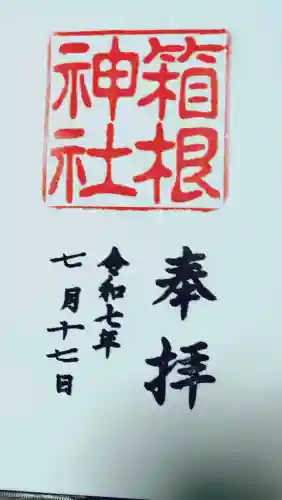 箱根
神社
奉拝
令和七年
七月十七日